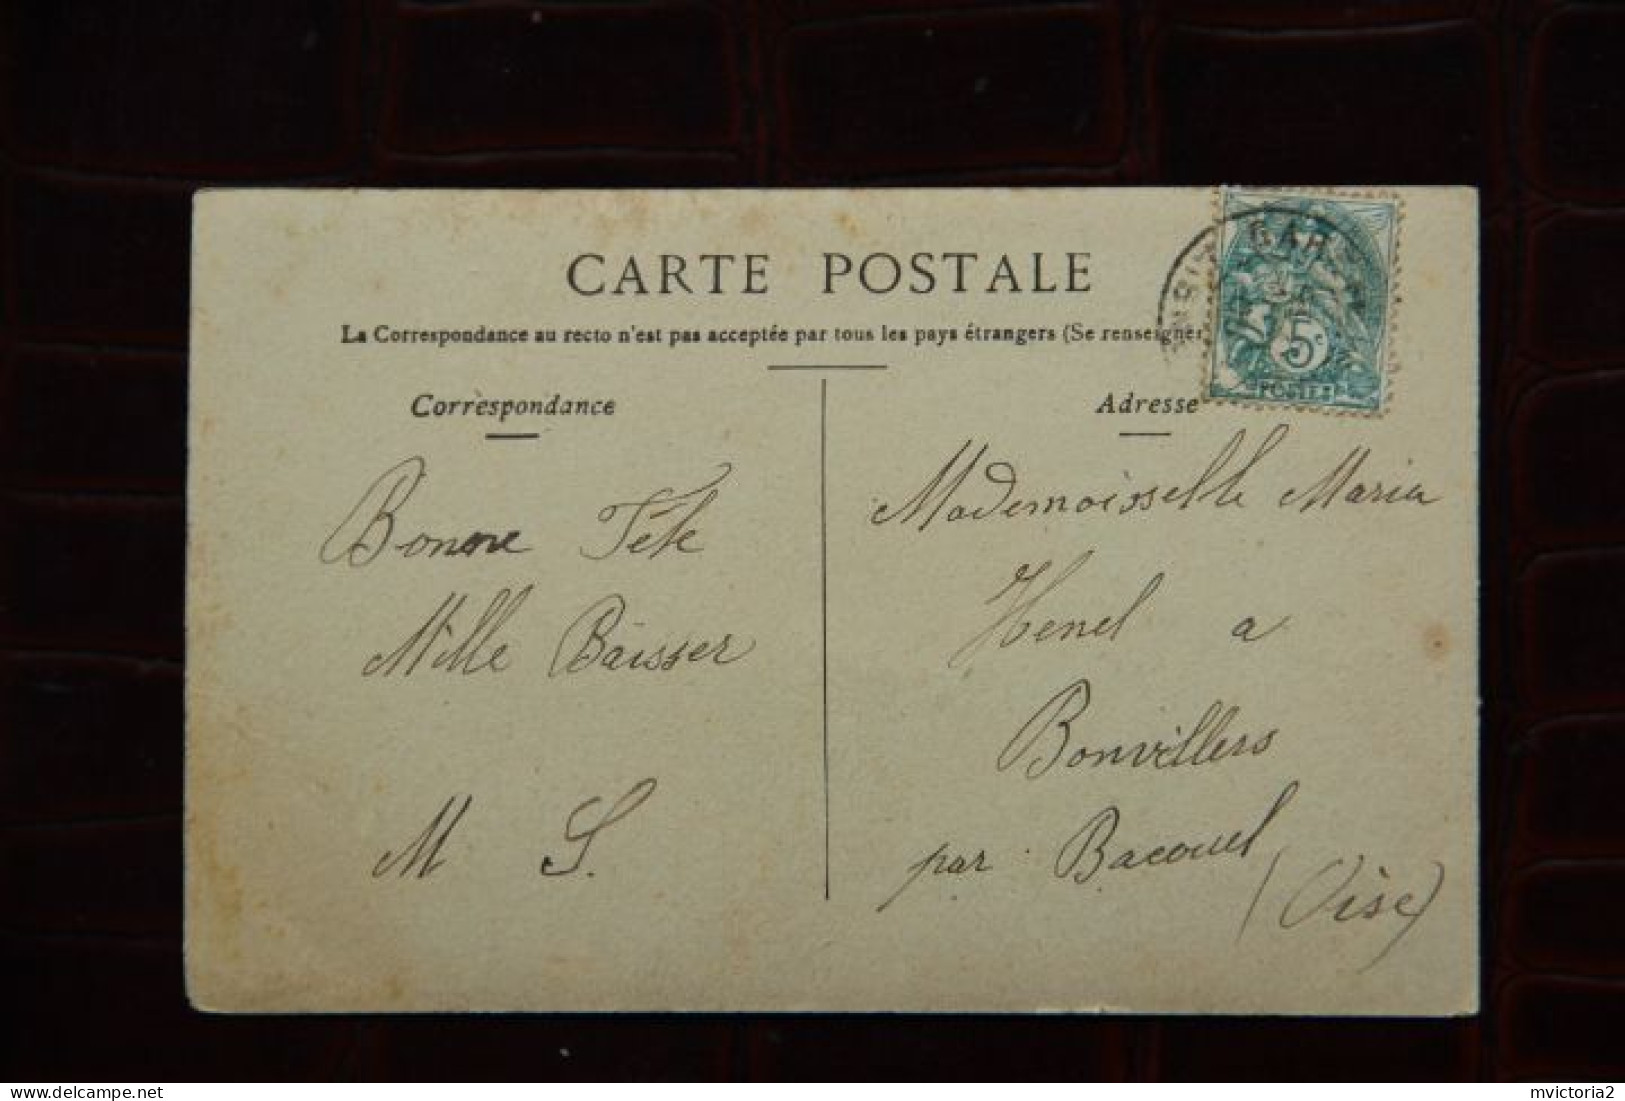 CARTE POSTALE
La Correspondance au recto n'est pas acceptée par tous les pays étrangers (Se renseigner
Correspondance
Bonne Fête
Mille Baisser
M S.
Adresse
Mademoisselle Maria
Henel a
Bonvillers
par Bacouel
(Oise)
GAR
5c
POSTES
delcampe.net
mvictoria2